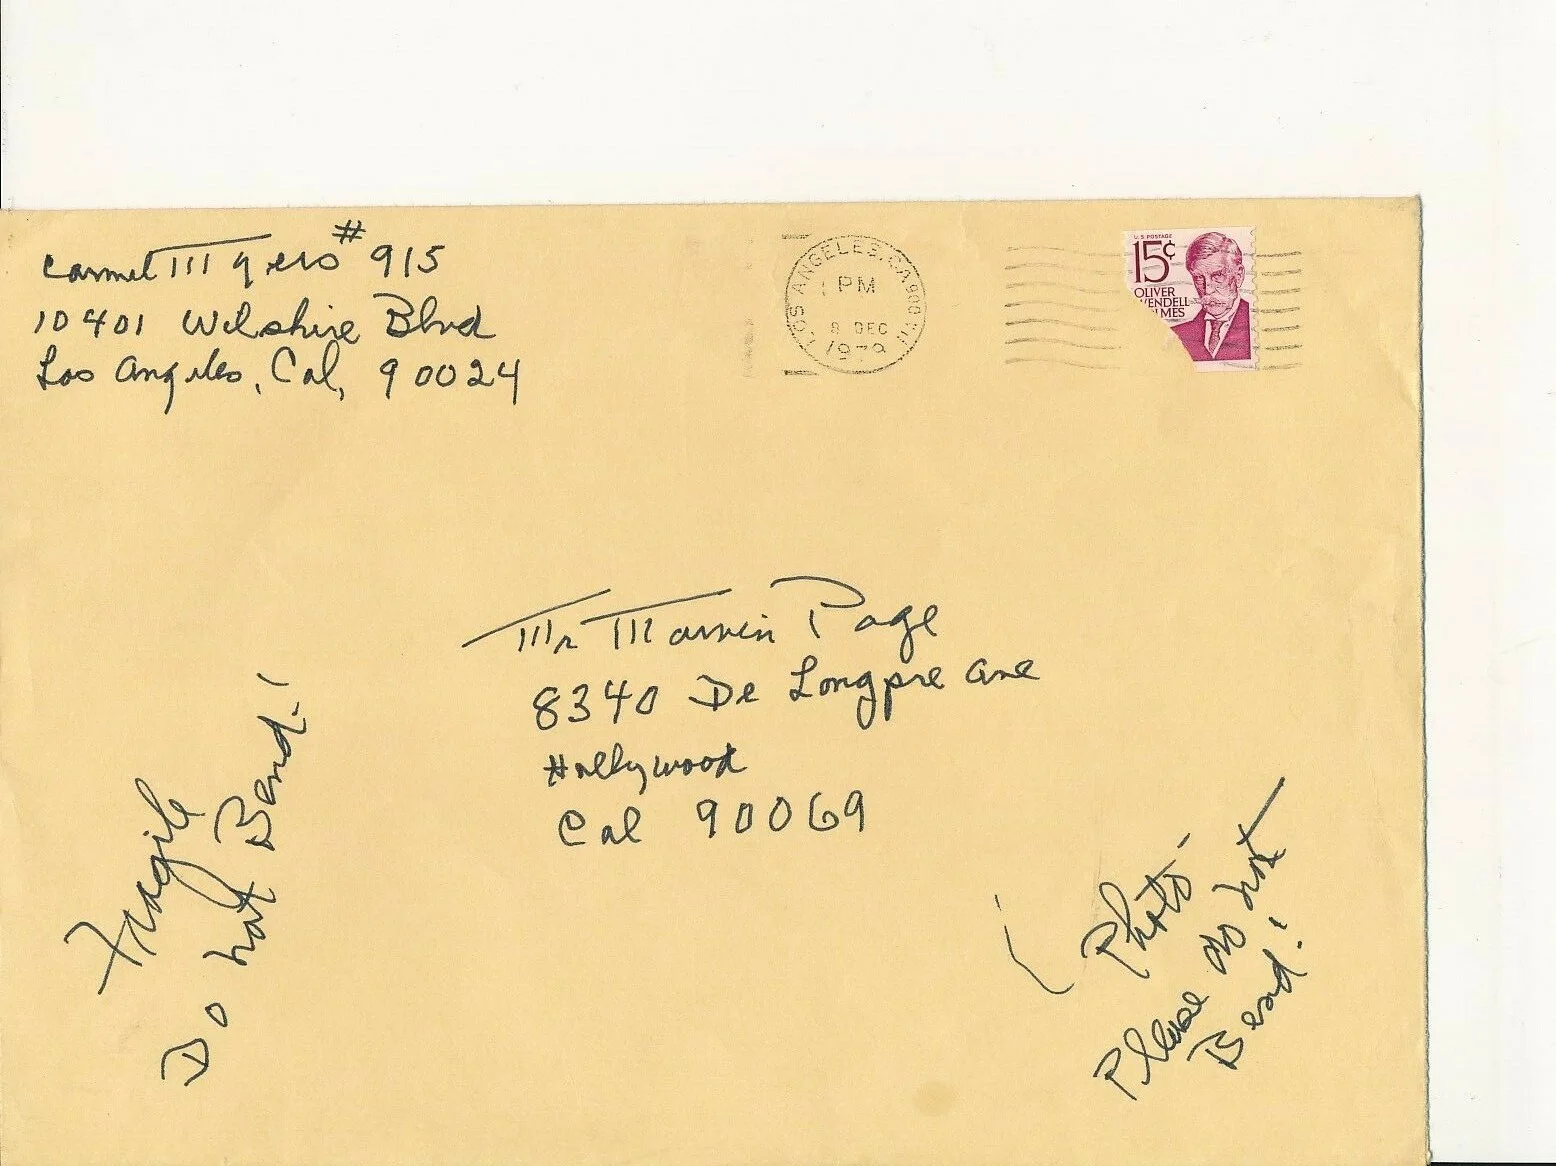 Carmel Myers #915
10401 Wilshire Blvd
Los Angeles, Cal, 90024
LOS ANGELES, CA 900
PM
8 DEC
1979
U.S. POSTAGE
15¢
OLIVER
WENDELL
LMES
Mr Marvin Page
8340 De Longpre Ave
Hollywood
Cal 90069
Fragile
Do not Bend!
Photo-
Please do not
Bend!